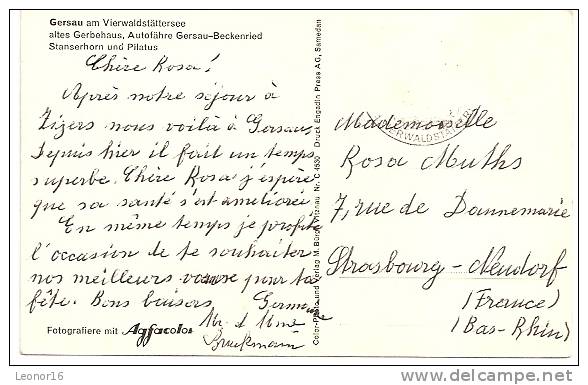 Gersau am Vierwaldstättersee
altes Gerbehaus, Autofähre Gersau–Beckenried
Stanserhorn und Pilatus
Chère Rosa!
Après notre séjour à
Zizers nous voilà à Gersau,
depuis hier il fait un temps
superbe. Chère Rosa j'espère
que sa santé s'est améliorée
En même temps je profite
l'occasion de te souhaiter
nos meilleurs voeux pour ta
fête. Bons baisers Germaine
Mr. et Mme
Bruckmann
Fotografiere mit Agfacolor
Color-Photo und Verlag M. Vitznau Nr. C 1630 Druck Engadin Press AG, Samedan
VIERWALDSTÄTTER
Mademoiselle
Rosa Muths
7, rue de Dannemarie
Strasbourg-Neudorf
(France)
(Bas-Rhin)
Leonor16
delcampe.net